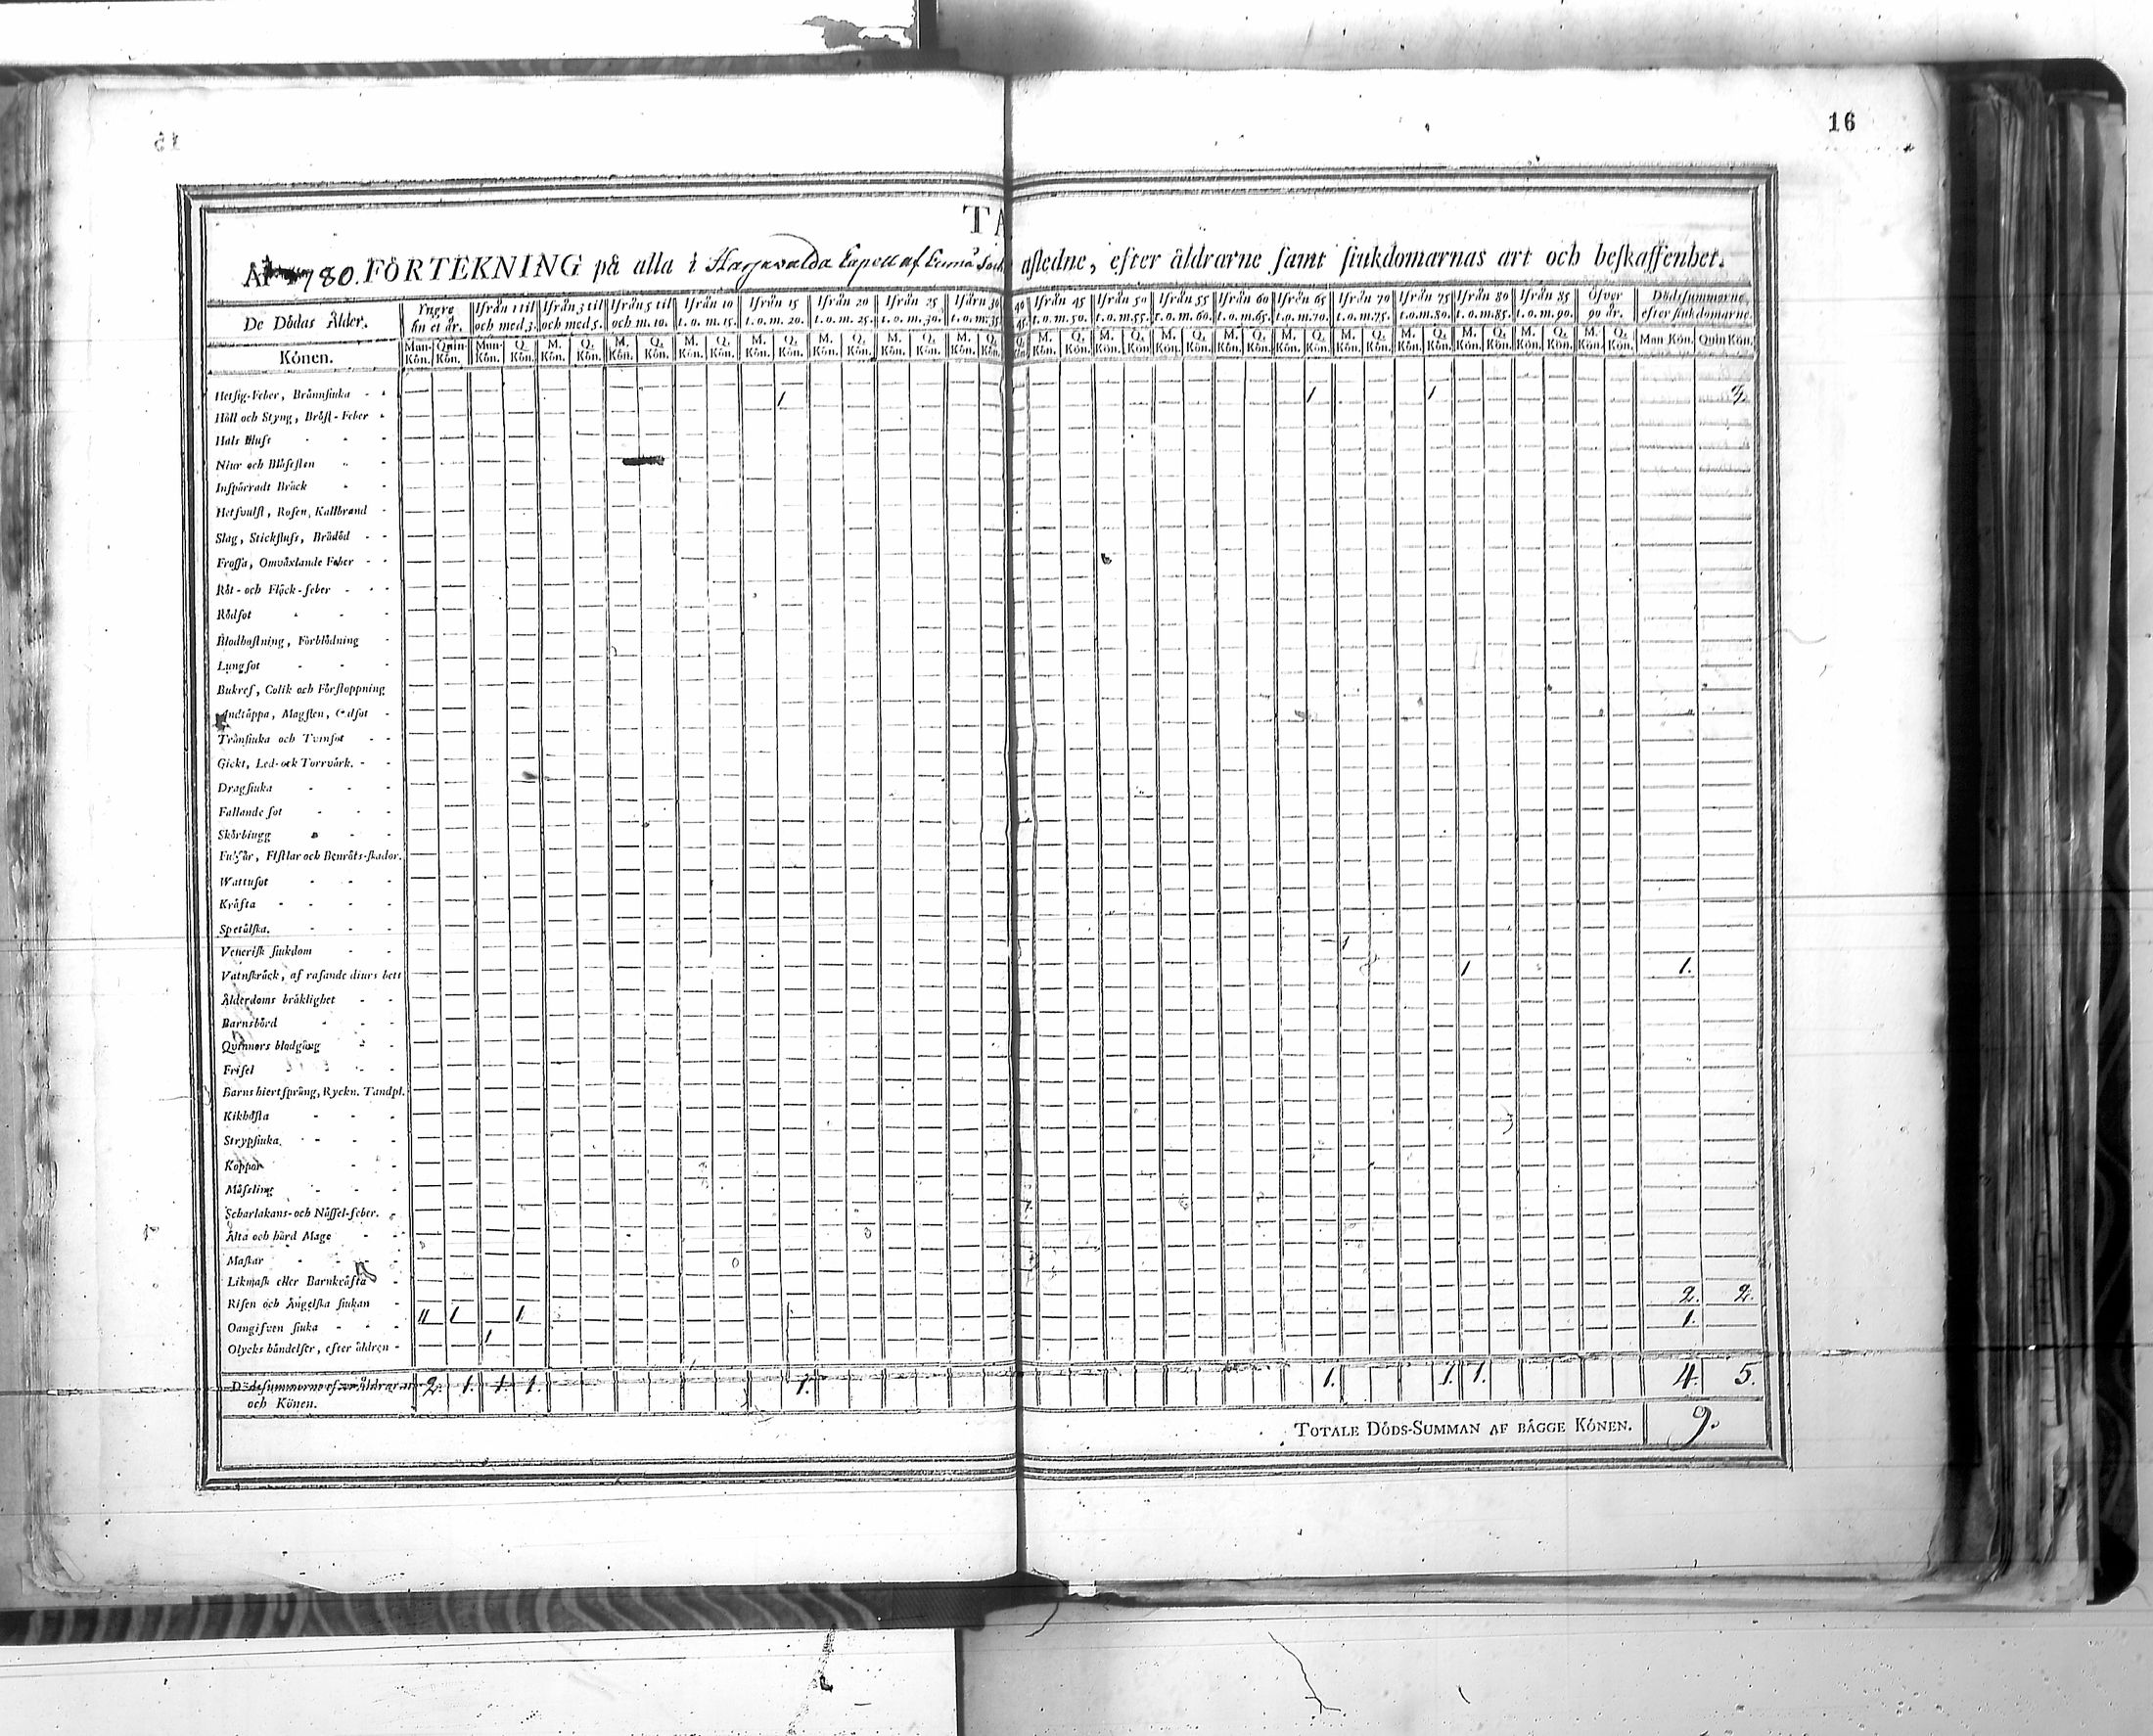 16
TA
År 1780. FÖRTEKNING på alla i Capell af Socken afledne, efter åldrarne samt siukdomarnas art och beskaffenhet.
De Dödas Ålder. Yngre än et år. Ifrån 1 til och med 3. Ifrån 3 til och med 5. Ifrån 5 til och m. 10. Ifrån 10 t.o.m. 15. Ifrån 15 t.o.m. 20. Ifrån 20 t.o.m. 25. Ifrån 25 t.o.m. 30. Ifrån 30 t.o.m. 35. 40 45. Ifrån 45 t.o.m. 50. Ifrån 50 t.o.m. 55. Ifrån 55 t.o.m. 60. Ifrån 60 t.o.m. 65. Ifrån 65 t.o.m. 70. Ifrån 70 t.o.m. 75. Ifrån 75 t.o.m. 80. Ifrån 80 t.o.m. 85. Ifrån 85 t.o.m. 90. Öfver 90 år. Dödssummorne efter siukdomarne.
Könen. Man-Kön. Quin-Kön. Man-Kön. Q. Kön. M. Kön. Q. Kön. M. Kön. Q. Kön. M. Kön. Q. Kön. M. Kön. Q. Kön. M. Kön. Q. Kön. M. Kön. Q. Kön. M. Kön. Q. Kön. M. Kön. Q. Kön. M. Kön. Q. Kön. M. Kön. Q. Kön. M. Kön. Q. Kön. M. Kön. Q. Kön. M. Kön. Q. Kön. M. Kön. Q. Kön. M. Kön. Q. Kön. M. Kön. Q. Kön. M. Kön. Q. Kön. Man Kön. Quin Kön.
Hetsig-Feber, Brännsiuka 1 1 1 3.
Håll och Styng, Bröst-Feber
Hals fluss
Niur och Blåsesten
Inspärradt Bråck
Hetsvulst, Rosen, Kallbrand
Slag, Stickfluss, Brådöd
Frossa, Omväxlande Feber
Röt- och Fläck-feber
Rödsot
Blodhostning, Förblödning
Lungsot
Bukref, Colik och Förstoppning
Andtäppa, Magsten, Gulsot
Trånsiuka och Tvinsot
Gickt, Led- och Torrvärk.
Dragsiuka
Fallande sot
Skörbiugg
Fulsår, Fistlar och Benröts-skador.
Wattusot
Kräfta
Spetälska.
Venerisk siukdom 1
Vatnskräck, af rasande diurs bett 1 1.
Ålderdoms bräklighet
Barnsbörd
Qvinnors blodgång
Frisel
Barns hiertsprång, Ryckn. Tandpl.
Kikhosta
Strypsiuka
Koppor
Mässling
Scharlakans- och Nässel-feber.
Älta och hård Mage
Maskar
Likmask eller Barnkräfta
Risen och Ängelska siukan 2. 2.
Oangifven siuka 11 1 1 1.
Olycks händelser, efter åldren 1
Dödssummorne efter Åldrarne och Könen. 2. 1. 1. 1. 1. 1. 1. 1. 4. 5.
TOTALE DÖDS-SUMMAN AF BÄGGE KÖNEN. 9.